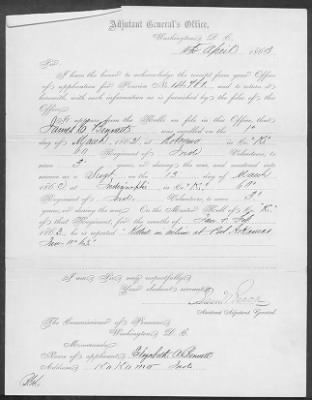 Adjutant General's Office,
Washington, D. C.
April 1863
Sir:
I have the honor to acknowledge the receipt from your Office
of application for Pension No. 14,761, and to return it
herewith, with such information as is furnished by the files of this
Office.
It appears from the Rolls on file in this Office, that
James C. Bennett was enrolled on the 1st
day of March, 1862, at Kokomo in Co. "K,"
60 Regiment of Ind. Volunteers, to serve
3 years, or during the war, and mustered into
service as a Sergt. on the 12 day of March,
1862, at Indianapolis in Co. "K," 60
Regiment of Ind. Volunteers, to serve 3
years, or during the war. On the Muster Roll of Co. "K,"
of that Regiment, for the months of Jan. & Feb.,
1863, he is reported "Killed in action at Post Arkansas
Jan. 11th 63"
I am, Sir, very respectfully,
Your obedient servant,
Assistant Adjutant General.
The Commissioner of Pensions,
Washington, D. C.
Memoranda:
Name of applicant, Elizabeth A. Bennett
Address, Kokomo Ind.